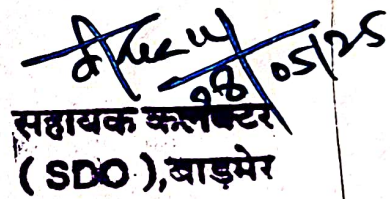 08/05/25
सहायक कलेक्टर
( SDO ),बाड़मेर